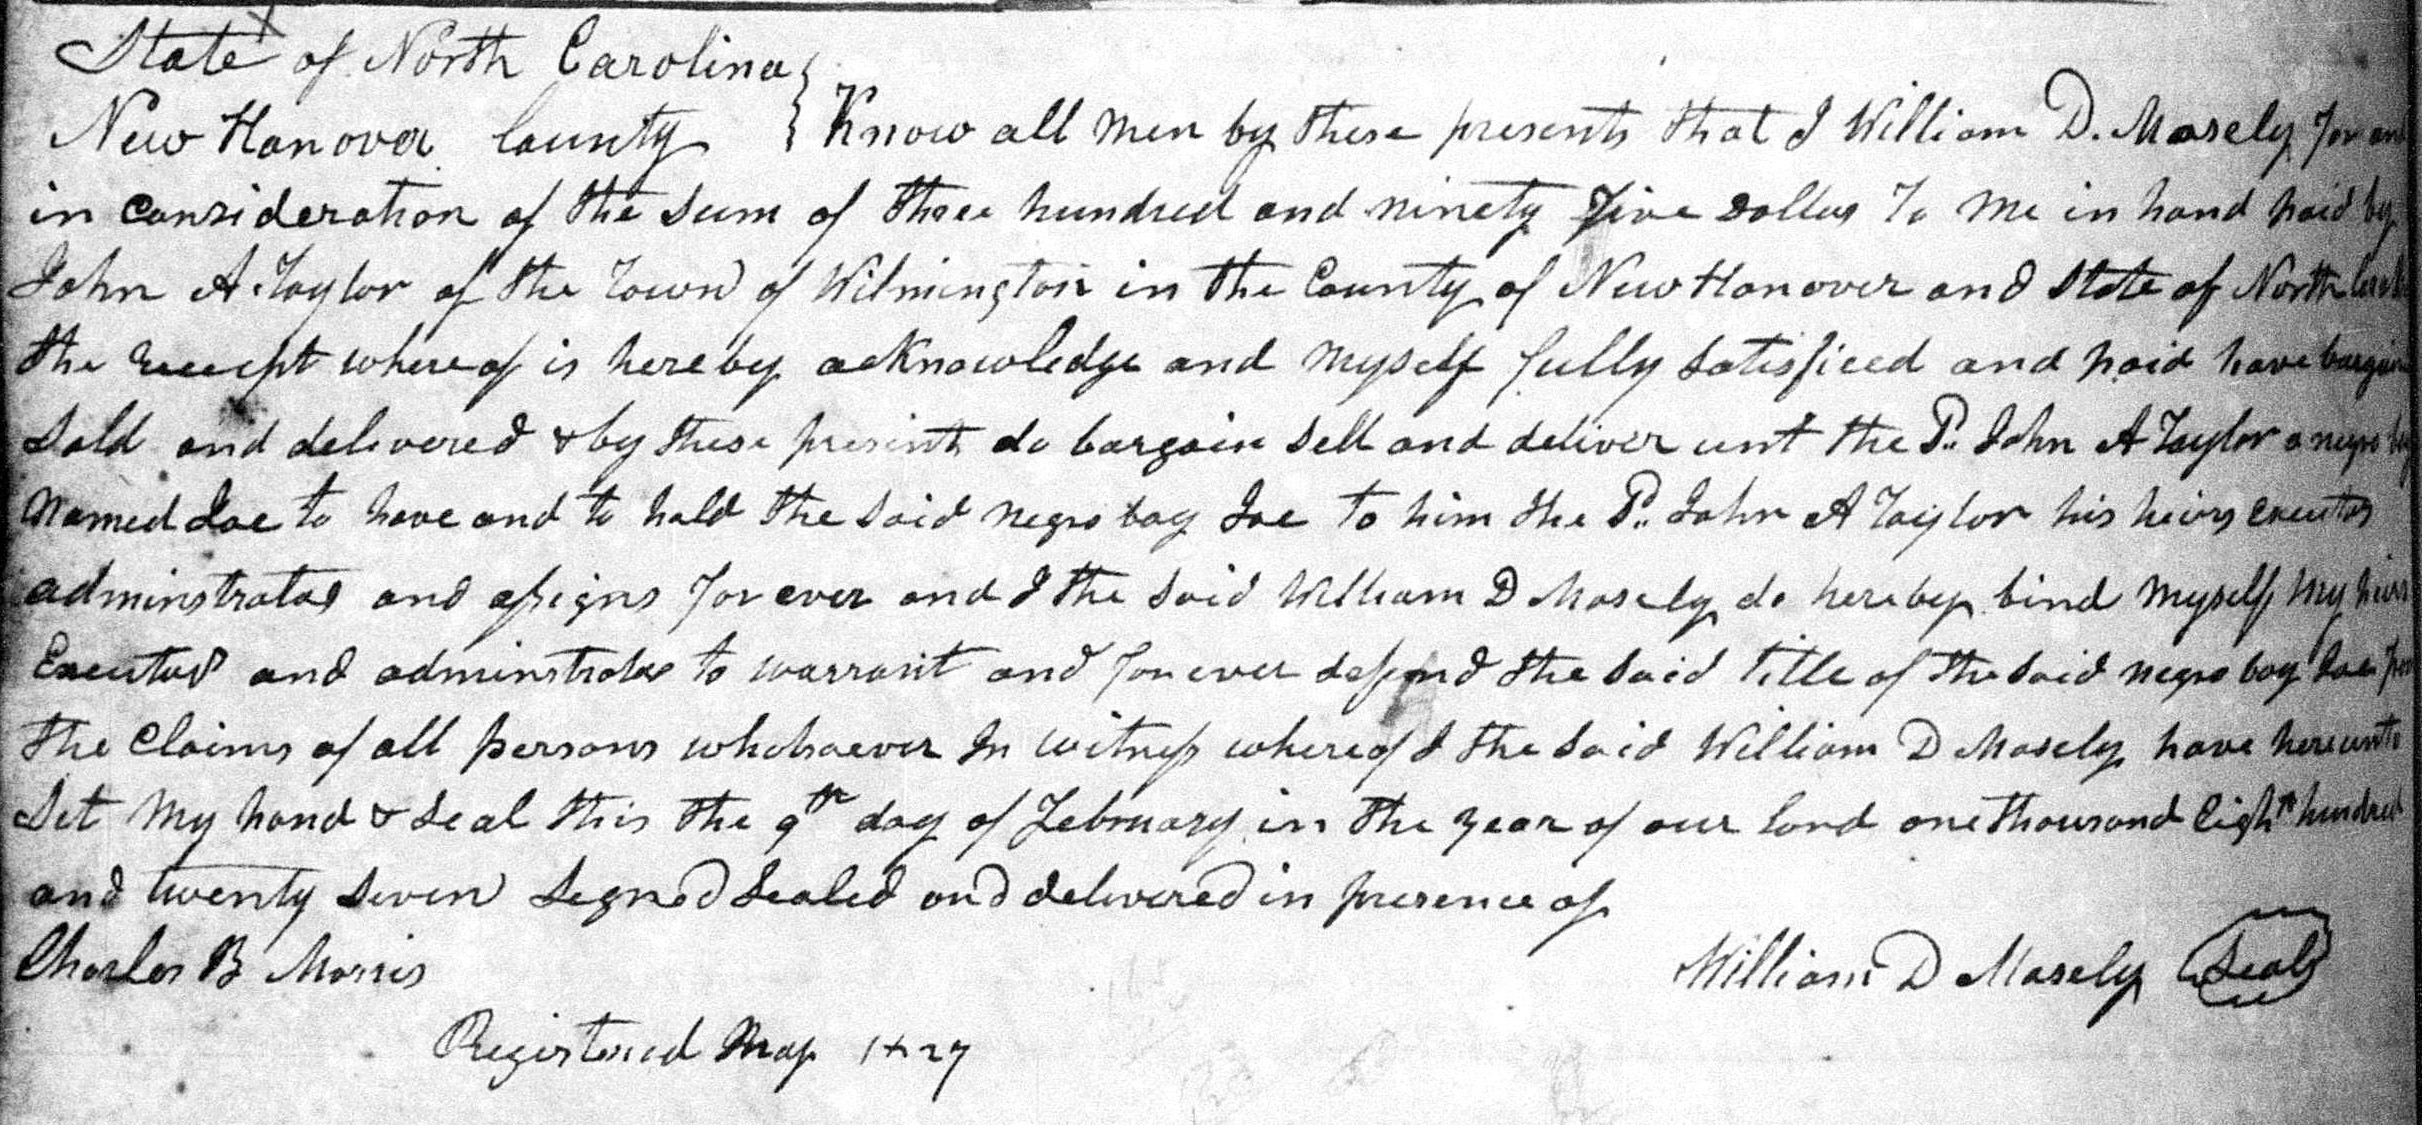 State of North Carolina
New Hanover County } Know all men by these presents that I William D. Mosely for and
in consideration of the sum of three hundred and ninety five Dollars To me in hand paid by
John A. Taylor of the Town of Wilmington in the County of New Hanover and State of North
the receipt whereof is hereby acknowledge and myself fully satisficed and paid have
Sold and delivered & by these presents do bargain sell and deliver unt the S.. John A Taylor a negro
Named Joe to have and to hold the said negro boy Joe to him the S.. John A Taylor his heirs executos
adminstratos and assigns for ever and I the said William D Mosely do hereby bind myself my heirs
Executos and adminstratos to warrant and for ever defend the said title of the said negro boy Joe from
the Claims of all persons whohsoever In witness whereof I the said William D Mosely have hereunto
Set my hand & seal this the 9th day of February in the year of our Lord one thousand Eight hundred
and twenty seven Signed Sealed and delivered in presence of
Charles B Morris
William D Mosely Seal
Registered May 1827